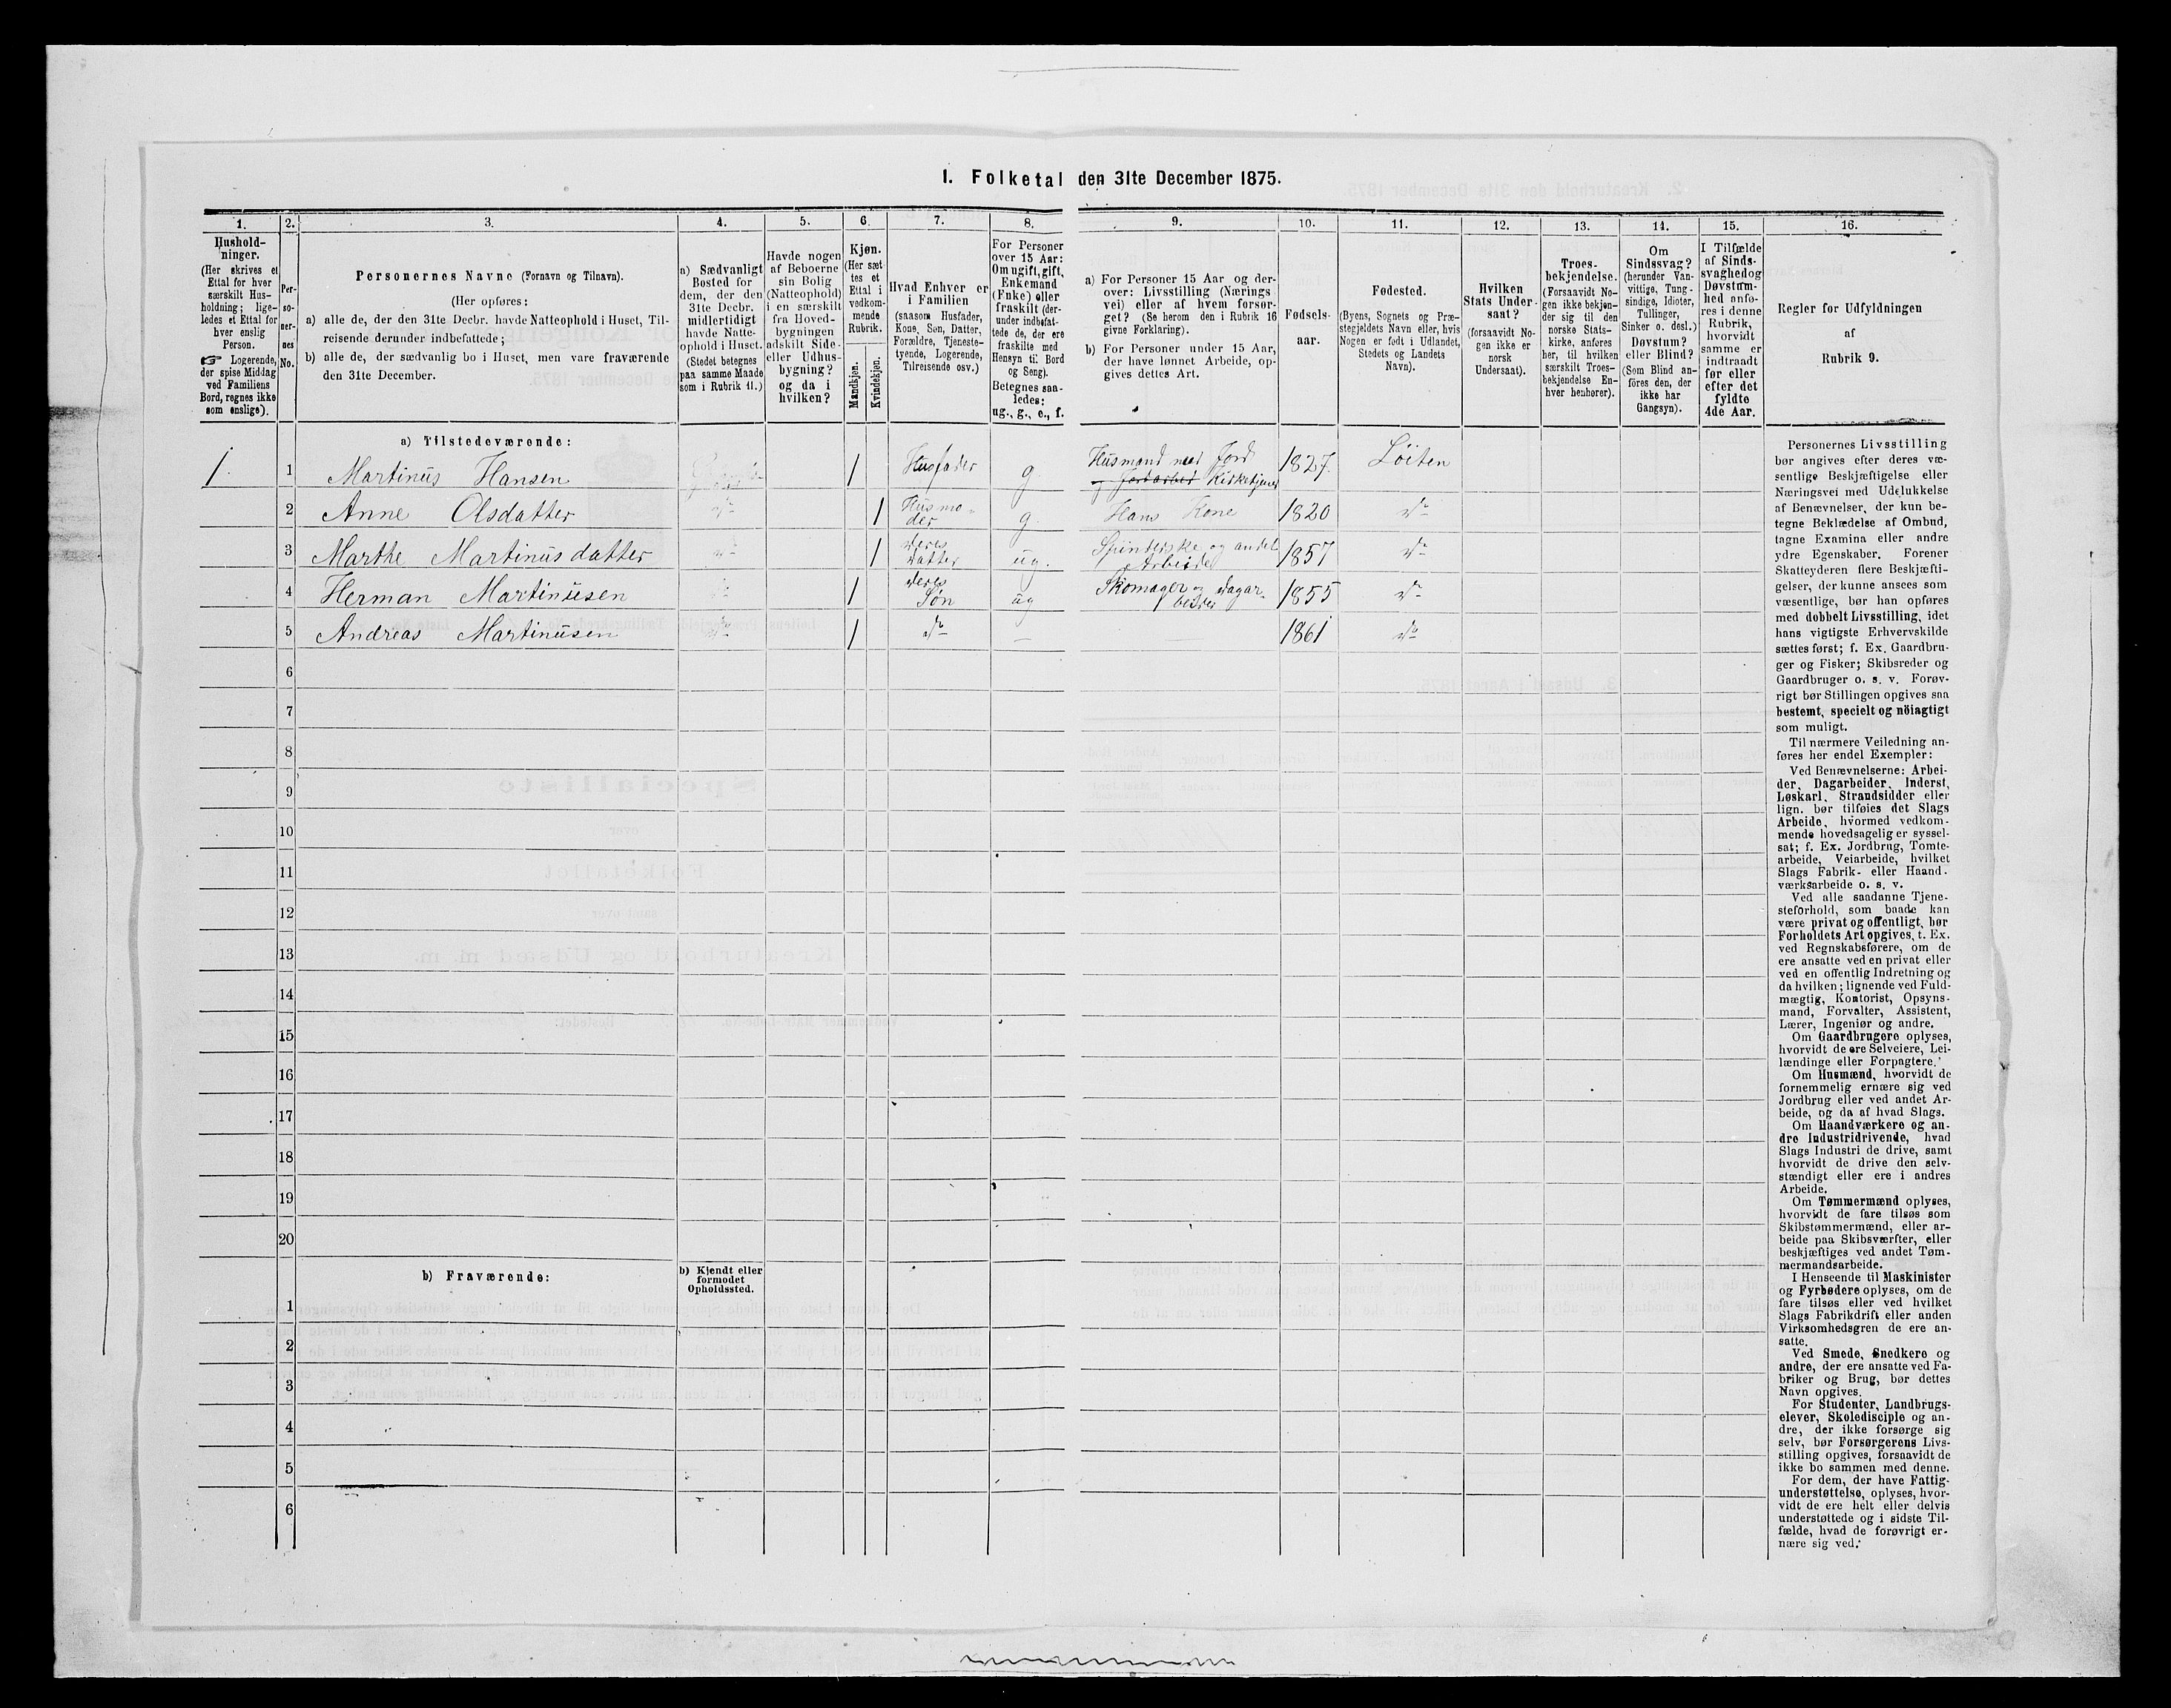 I. Folketal den 31te December 1875.
1. 2. 3. 4. 5. 6. 7. 8. 9. 10. 11. 12. 13. 14. 15. 16.
Hushold-
ninger.
(Her skrives et
Ettal for hver
særskilt Hus-
holdning; lige-
ledes et Ettal for
hver enslig
Person.
☞ Logerende,
der spise Middag
ved Familiens
Bord, regnes ikke
som enslige).
Per-
so-
ner-
nes
No.
Personernes Navne (Fornavn og Tilnavn).
(Her opføres:
a) alle de, der den 31te Decbr. havde Natteophold i Huset, Til-
reisende derunder indbefattede;
b) alle de, der sædvanlig bo i Huset, men vare fraværende
den 31te December.
a) Sædvanligt
Bosted for
dem, der den
31te Decbr.
midlertidigt
havde Natte-
ophold i Huset.
(Stedet betegnes
paa samme Maade
som i Rubrik 11.)
Havde nogen
af Beboerne
sin Bolig
(Natteophold)
i en særskilt
fra Hoved-
bygningen
adskilt Side-
eller Udhus-
bygning?
og da i
hvilken?
Kjøn.
(Her sæt-
tes et
Ettal i
vedkom-
mende
Rubrik.
Mandkjøn.
Kvindekjøn.
Hvad Enhver er
i Familien
(saasom Husfader,
Kone, Søn, Datter,
Forældre, Tjeneste-
tyende, Logerende,
Tilreisende osv.)
For Personer
over 15 Aar:
Om ugift, gift,
Enkemand
(Enke) eller
fraskilt (der-
under indbefat-
tede de, der ere
fraskilte med
Hensyn til Bord
og Seng).
Betegnes saa-
ledes:
ug., g., e., f.
a) For Personer 15 Aar og der-
over: Livsstilling (Nærings
vei) eller af hvem forsør-
get? (Se herom den i Rubrik 16
givne Forklaring).
b) For Personer under 15 Aar,
der have lønnet Arbeide, op-
gives dettes Art.
Fødsels-
aar.
Fødested.
(Byens, Sognets og Præ-
stegjeldets Navn eller, hvis
Nogen er født i Udlandet,
Stedets og Landets
Navn).
Hvilken
Stats Under-
saat?
(forsaavidt No-
gen ikke er
norsk
Undersaat).
Troes-
bekjendelse.
(Forsaavidt No-
gen ikke bekjen-
der sig til den
norske Stats-
kirke, anføres
her, til hvilken
særskilt Troes-
bekjendelse En-
hver henhører).
Om
Sindssvag?
(herunder Van-
vittige, Tung-
sindige, Idioter,
Tullinger,
Sinker o. desl.)
Døvstum?
eller Blind?
(Som Blind an-
føres den, der
ikke har
Gangsyn).
I Tilfælde
af Sinds-
svaghed og
Døvstum-
hed anfø-
res i denne
Rubrik,
hvorvidt
samme er
indtraadt
før eller
efter det
fyldte
4de Aar.
Regler for Udfyldningen
af
Rubrik 9.
a) Tilstedeværende:
1. 1 Martinus Hansen 1 Husfader g Husmand med Jord
og Jordarbei Kirketjener 1827. Löiten
2 Anne Olsdatter do 1 Husmo-
der g. Hans Kone 1820 do
3 Marthe Martinusdatter do 1 deres
Datter ug. Spinderske og andet
Arbeide 1857 do
4 Herman Martinusen 1 deres
Søn ug Skomager og Dagar-
beider 1855 do
5 Andreas Martinusen do 1 do — 1861 do
6
7
8
9
10
11
12
13
14
15
16
17
18
19
20
b) Fraværende:
b) Kjendt eller
formodet
Opholdssted.
1
2
3
4
5
6
Personernes Livsstilling
bør angives efter deres væ-
sentlige Beskjæftigelse eller
Næringsvei med Udelukkelse
af Benævnelser, der kun be-
tegne Beklædelse af Ombud,
tagne Examina eller andre
ydre Egenskaber. Forener
Skatteyderen flere Beskjæfti-
gelser, der kunne ansees som
væsentlige, bør han opføres
med dobbelt Livsstilling, idet
hans vigtigste Erhvervskilde
sættes først; f. Ex. Gaardbru-
ger og Fisker; Skibsreder og
Gaardbruger o. s. v. Forøv-
rigt bør Stillingen opgives saa
bestemt, specielt og nöiagtigt
som muligt.
Til nærmere Veiledning an-
føres her endel Exempler:
Ved Benævnelserne: Arbei-
der, Dagarbeider, Inderst,
Løskarl, Strandsidder eller
lign. bør tilføies det Slags
Arbeide, hvormed vedkom-
mende hovedsagelig er syssel-
sat; f. Ex. Jordbrug, Tomte-
arbeide, Veiarbeide, hvilket
Slags Fabrik- eller Haand-
værksarbeide o. s. v.
Ved alle saadanne Tjene-
steforhold, som baade kan
være privat og offentligt, bør
Forholdets Art opgives, t. Ex.
ved Regnskabsførere, om de
ere ansatte ved en privat eller
ved en offentlig Indretning og
da hvilken; lignende ved Fuld-
mægtig, Kontorist, Opsyns-
mand, Forvalter, Assistent,
Lærer, Ingeniør og andre.
Om Gaardbrugere oplyses,
hvorvidt de ere Selveiere, Lei-
lændinge eller Forpagtere.
Om Husmænd, hvorvidt de
fornemmelig ernære sig ved
Jordbrug eller ved andet Ar-
beide, og da af hvad Slags.
Om Haandværkere og an-
dre Industridrivende, hvad
Slags Industri de drive, samt
hvorvidt de drive den selv-
stændigt eller ere i andres
Arbeide.
Om Tømmermænd oplyses,
hvorvidt de fare tilsøs som
Skibstømmermænd, eller ar-
beide paa Skibsværfter, eller
beskjæftiges ved andet Tøm-
mermandsarbeide.
I Henseende til Maskinister
og Fyrbødere oplyses, om de
fare tilsøs eller ved hvilket
Slags Fabrikdrift eller anden
Virksomhedsgren de ere an-
satte.
Ved Smede, Snedkere og
andre, der ere ansatte ved Fa-
briker og Brug, bør dettes
Navn opgives.
For Studenter, Landbrugs-
elever, Skoledisciple og an-
dre, der ikke forsørge sig
selv, bør Forsørgerens Livs-
stilling opgives, forsaavidt de
ikke bo sammen med denne.
For dem, der have Fattig-
understøttelse, oplyses, hvor-
vidt de ere helt eller delvis
understøttede og i sidste Til-
fælde, hvad de forøvrigt er-
nære sig ved.